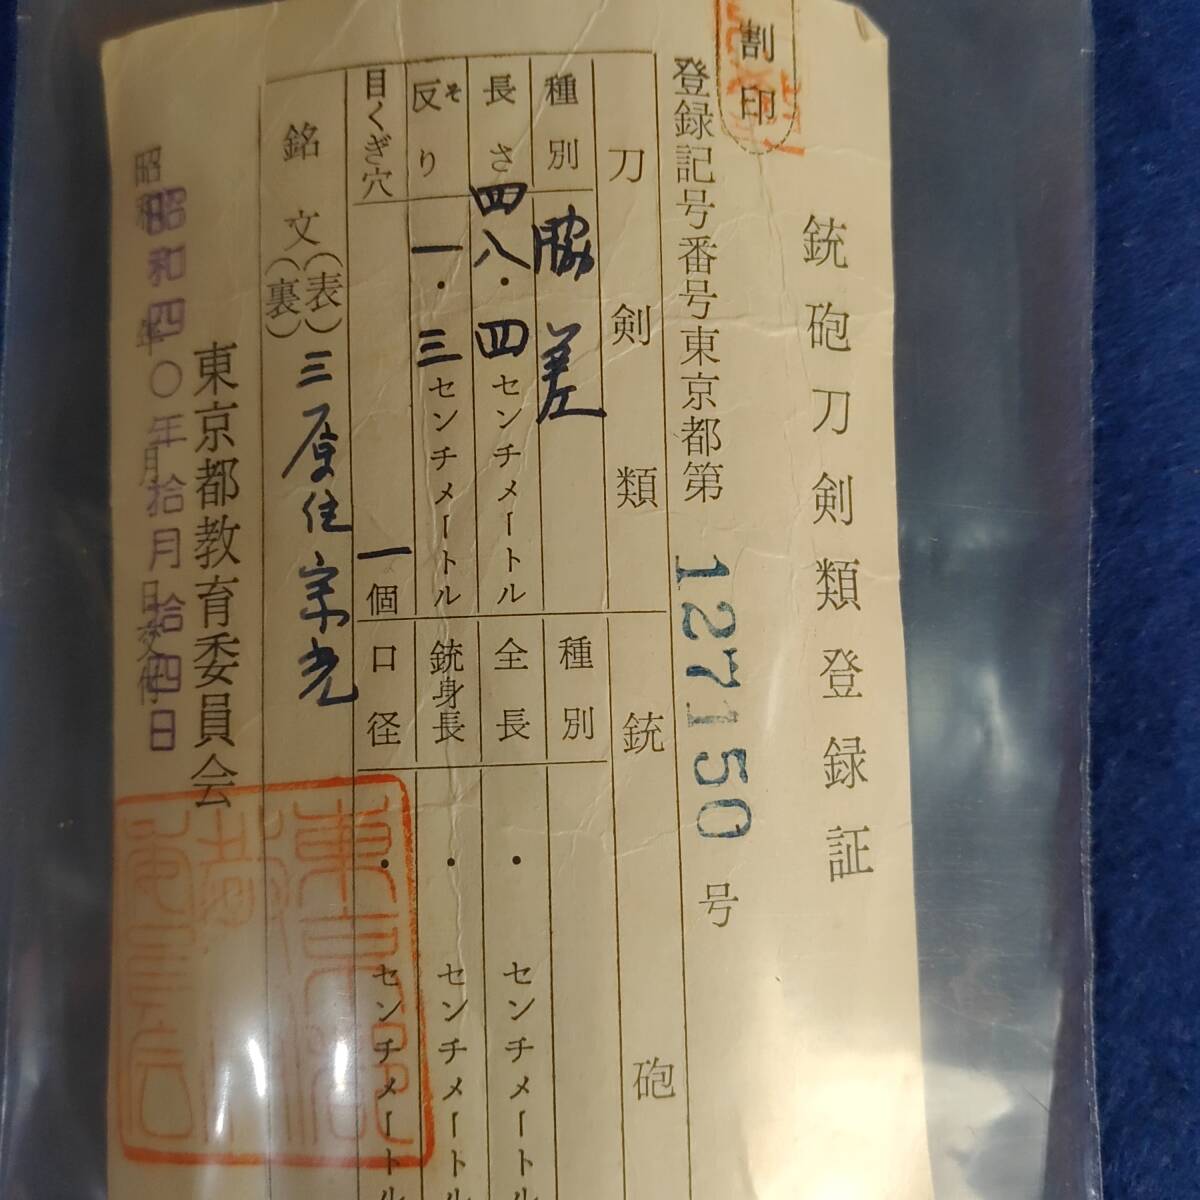 割印
銃砲刀剣類登録証
登録記号番号東京都第127150号
刀剣類
種別 脇差
長さ 四八・四センチメートル
反り そ 一・三センチメートル
目くぎ穴 一個
銃砲
種別
全長 ・ センチメートル
銃身長 ・ センチメートル
口径 ・ センチメートル
銘文(表) 三原住宗光
(裏)
東京都教育委員会
昭和 年 月 日交付
昭和四〇年拾月拾四日